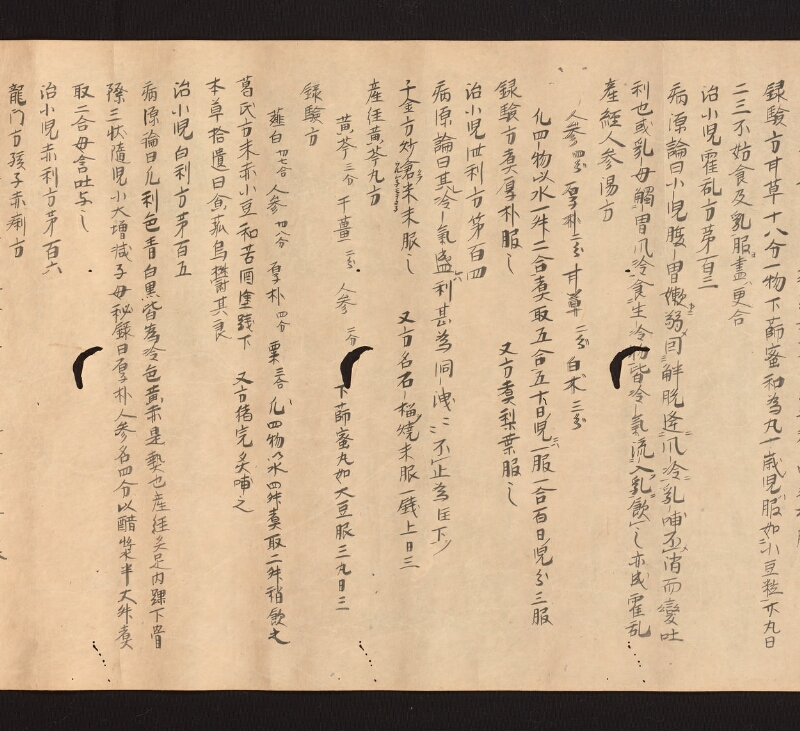 録驗方甘草十八分一物下篩蜜和為丸一歳児服如小豆粒十丸日
二三不妨食及乳服盡更合
治小児霍乱方第百三
病源論曰小児腹胃嫩弱因解脱逢風冷乳哺不消而變吐
利也或乳母觸冒風冷食生冷物皆冷氣流入乳飲之亦成霍乱
産経人参湯方
人参四分 厚朴二分 甘草二分 白朮三分
凡四物以水一升二合煮取五合五十日児一服一合百日児分三服
録驗方煮厚朴服之 又方煮梨葉服之
治小児泄利方第百四
病源論曰其冷氣盛利甚為洞泄〻不止為注下
千金方炒倉米末服之 又方石榴燒末服一錢上日三
産経黄芩丸方
黄芩三分 干薑二分 人参二分 下篩蜜丸如大豆服三丸日三
録驗方
薤白切七合 人参切八分 厚朴四分 粟三合 凡四物以水四升煮取二升稍飲之
葛氏方末赤小豆和苦酒塗踐下 又方猪完炙哺之
本草拾遺曰食菰烏欝其良
治小児白利方第百五
病源論曰凡利色青白黒皆為冷色黄赤是熱也産経灸足内踝下骨
際三状隨児小大増減子母秘録曰厚朴人参各四分以醋漿半大升煮
取二合母含吐与之
治小児赤利方第百六
龍門方孩子赤痢方